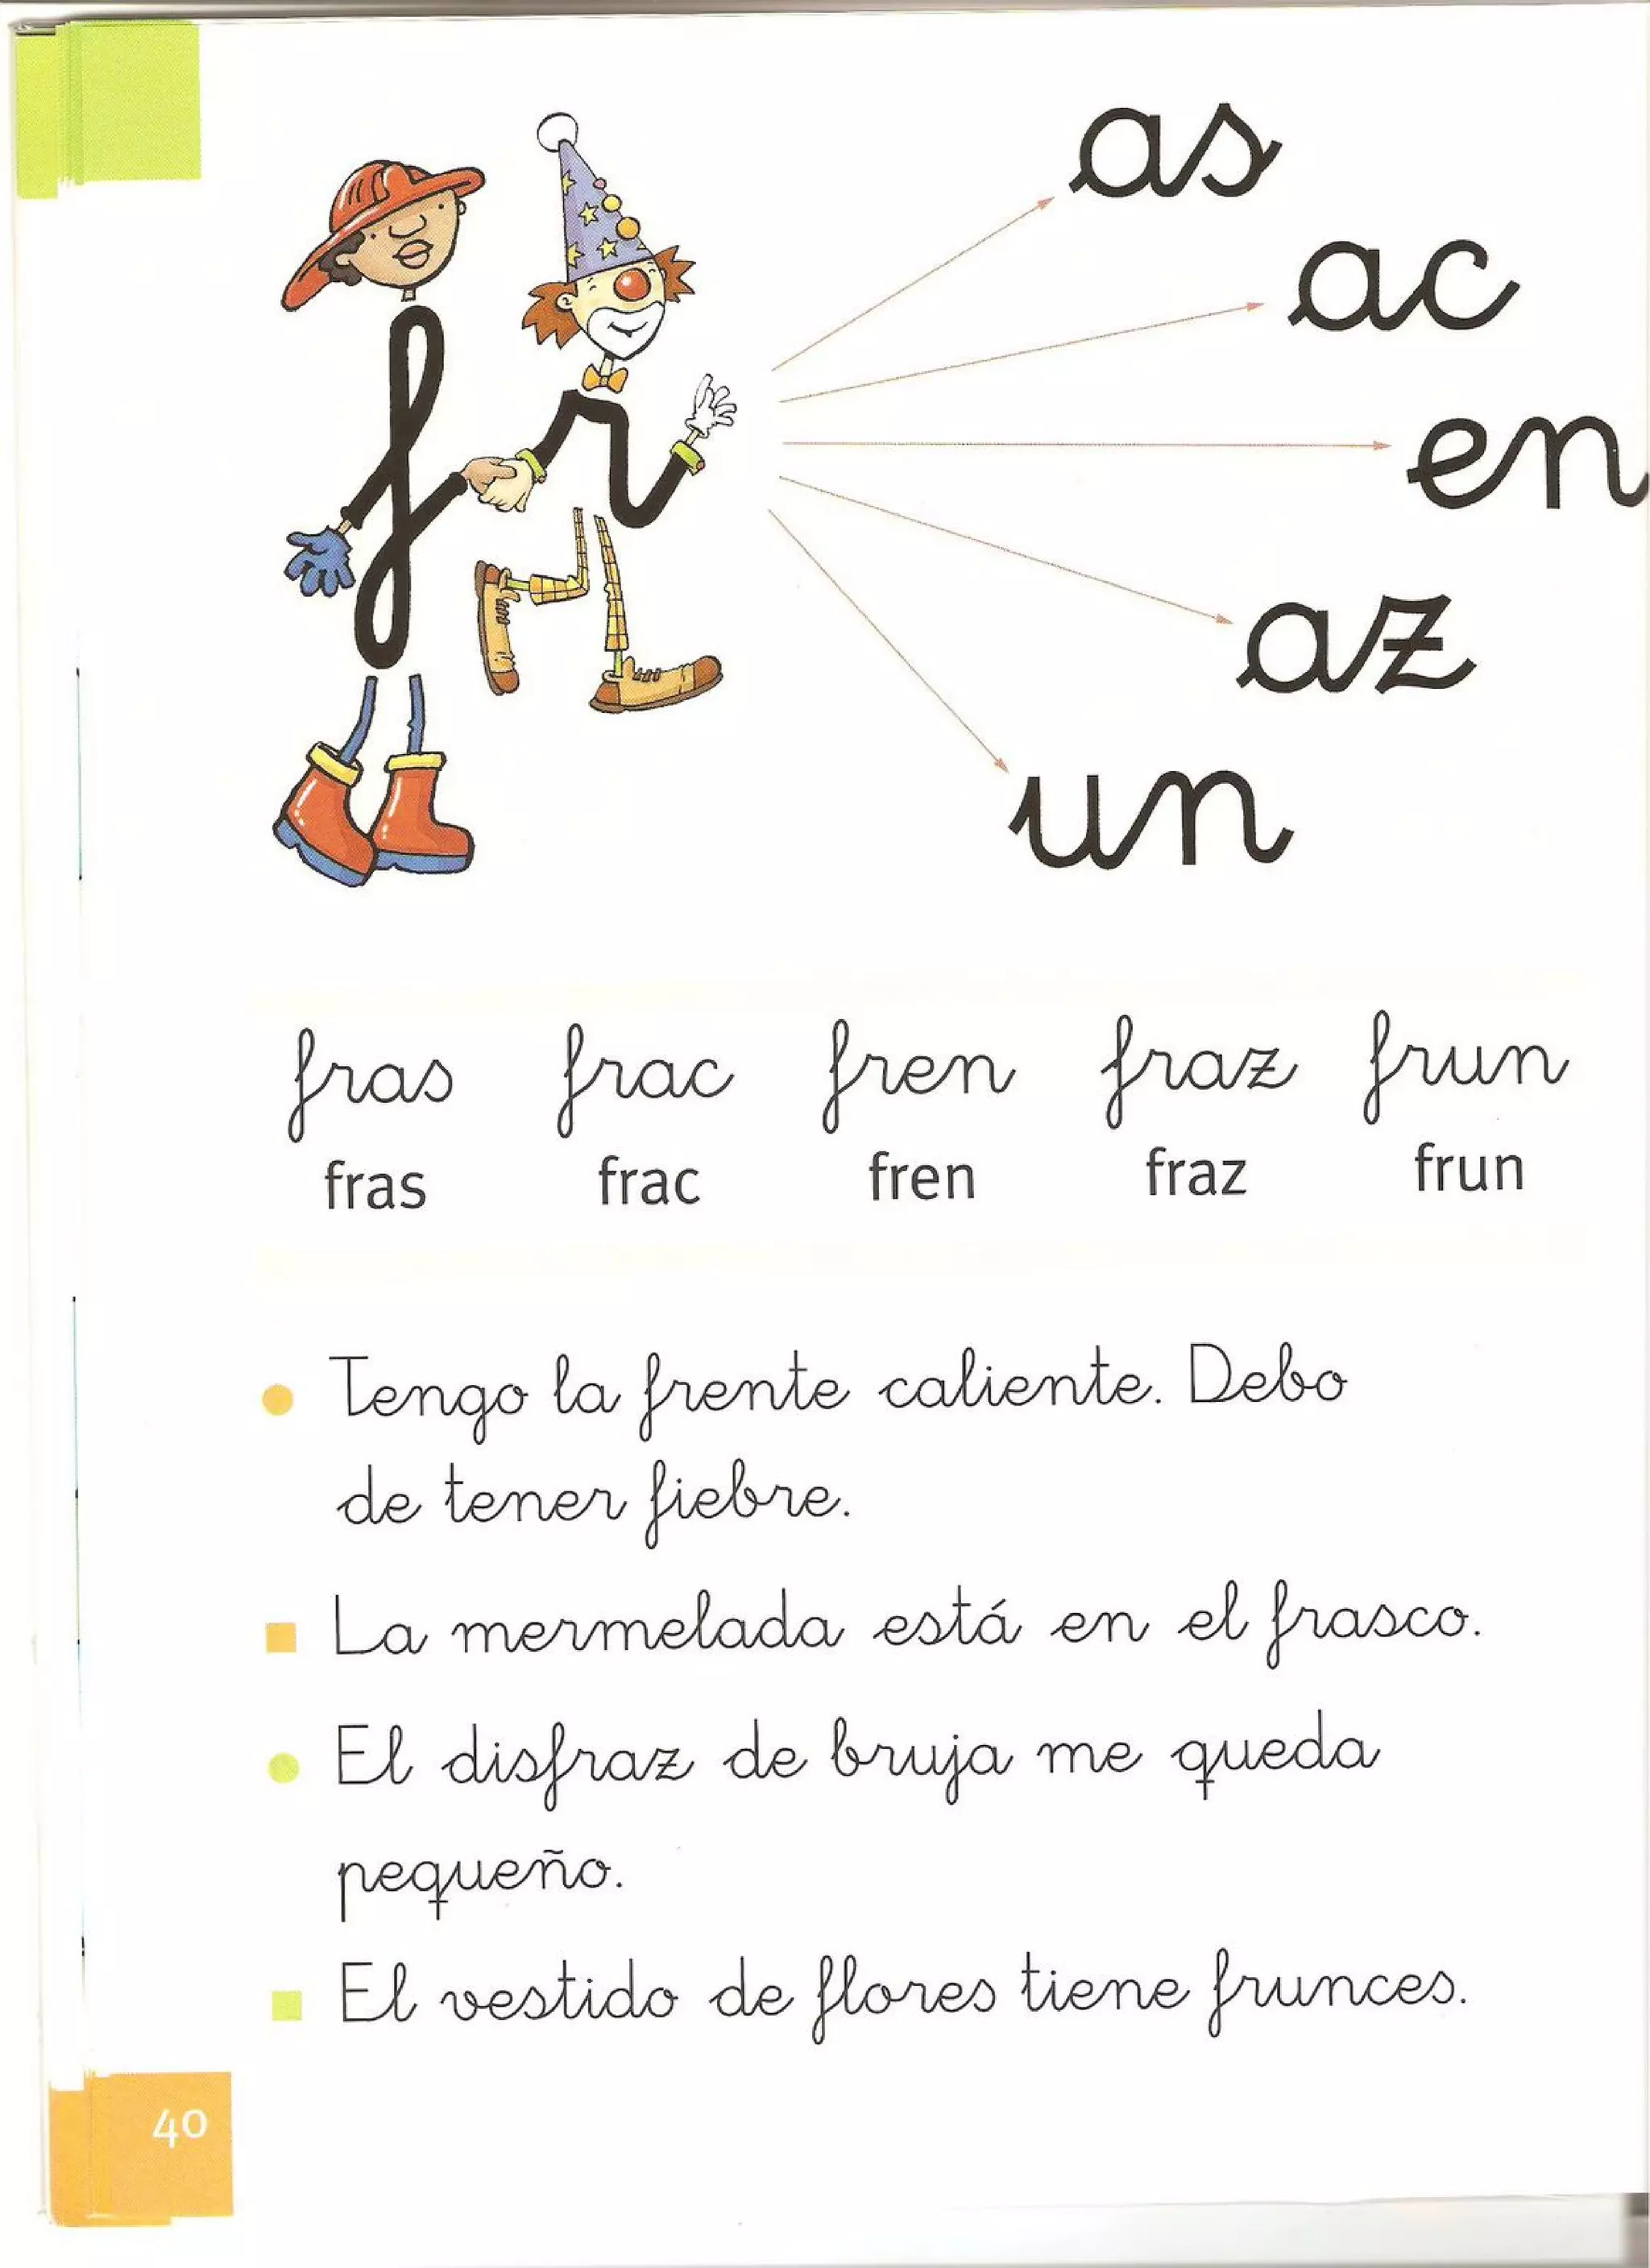 fr
as
ac
en
az
un
fras frac fren fraz frun
fras frac fren fraz frun
Tengo la frente caliente. Debo
de tener fiebre.
La mermelada está en el frasco.
El disfraz de bruja me queda
pequeño.
El vestido de flores tiene frunces.
40